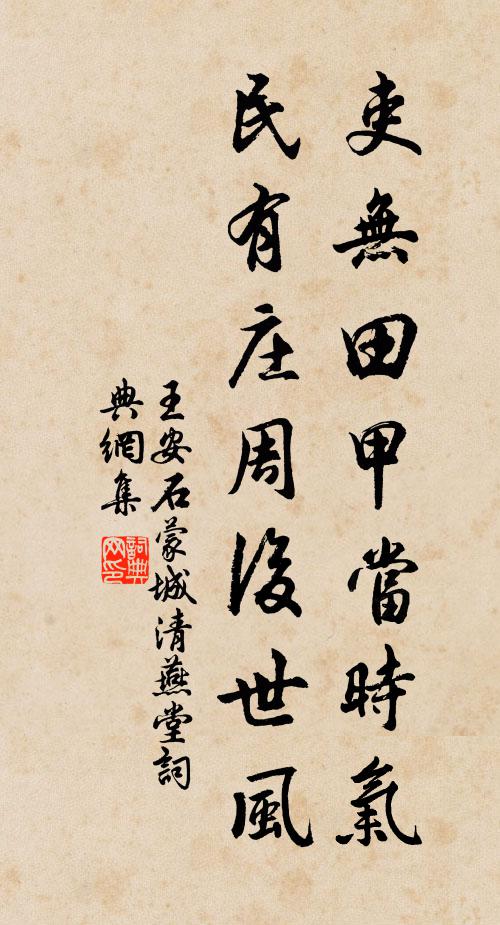 吏無田甲當時氣
民有庄周後世風
王安石蒙城清燕堂詞
典網集
詞典網印